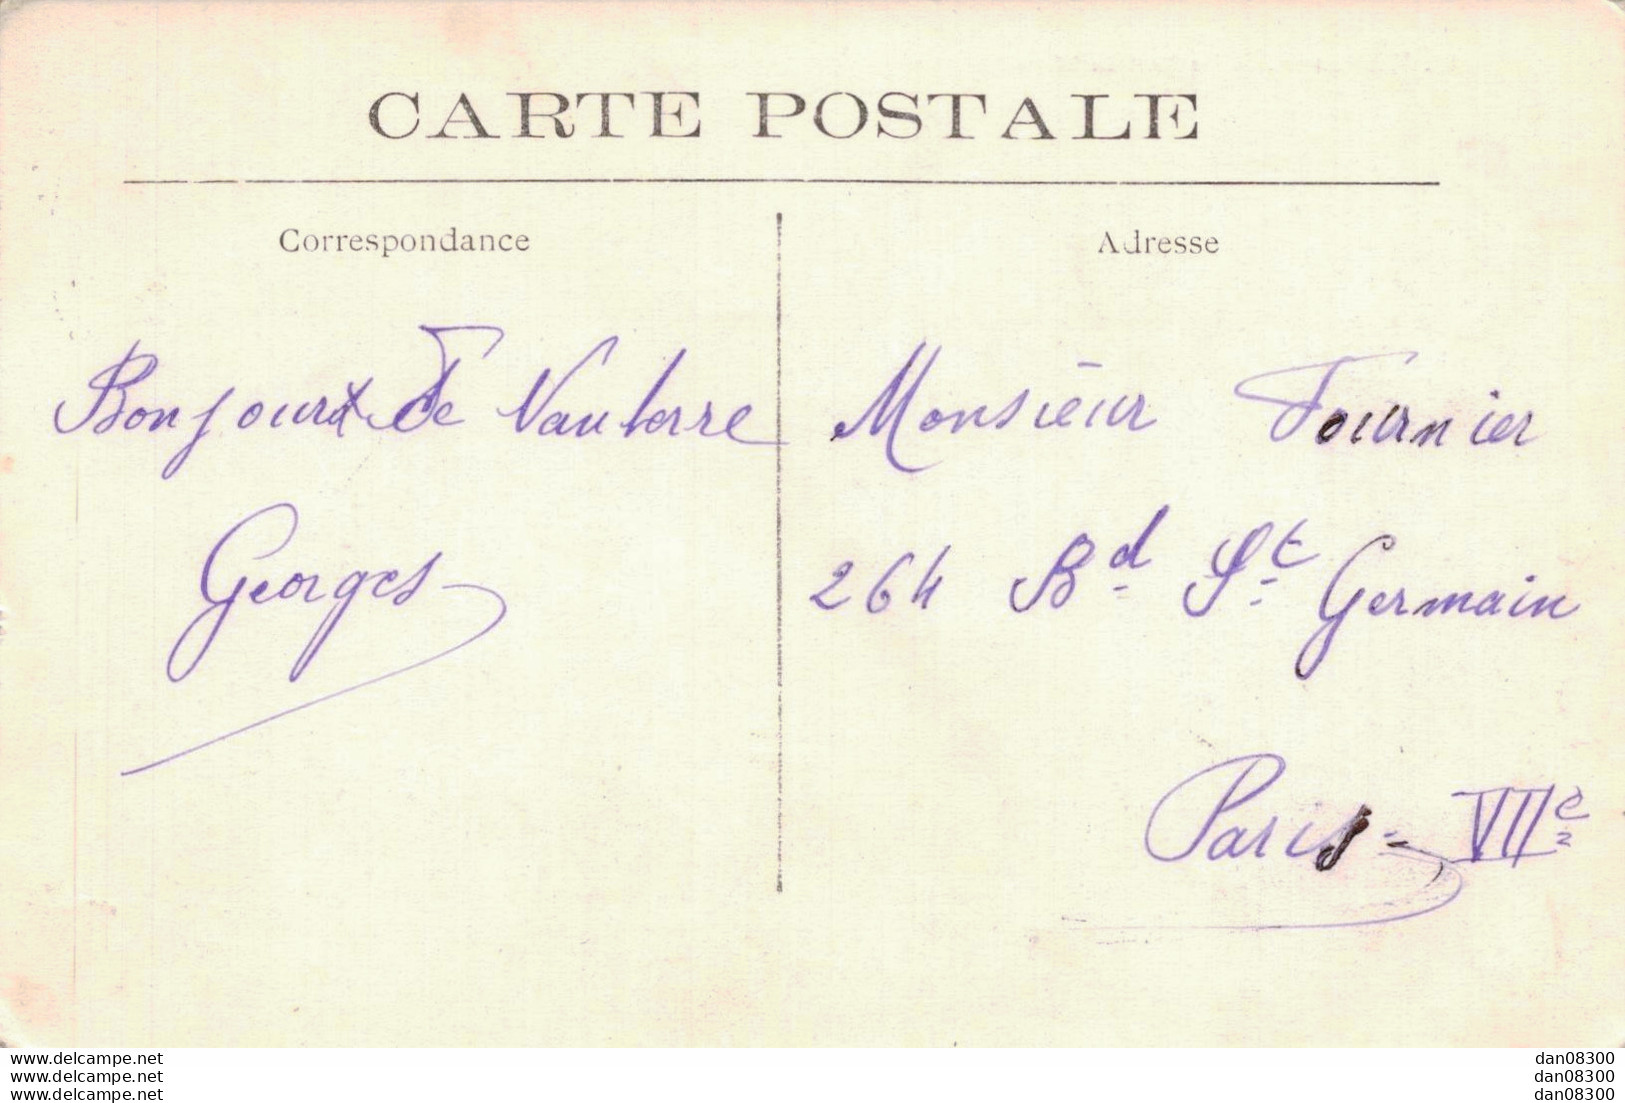 CARTE POSTALE
Correspondance
Bonjour de Nanterre
Georges
Adresse
Monsieur Fournier
264 Bd St Germain
Paris - VIIe
www.delcampe.net
www.delcampe.net
www.delcampe.net
dan08300
dan08300
dan08300